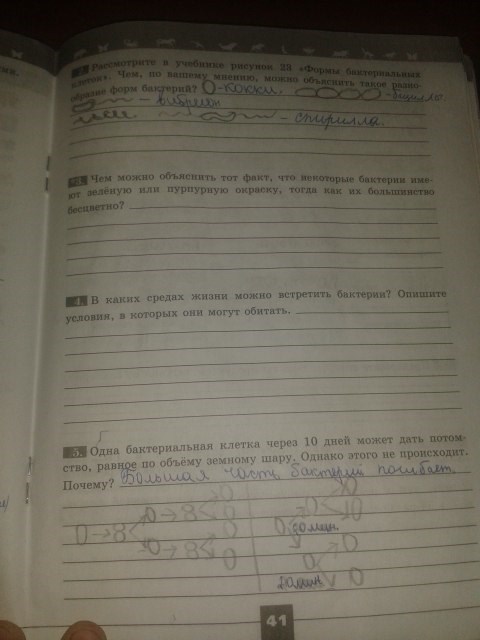 2. Рассмотрите в учебнике рисунок 23 «Формы бактериальных
клеток». Чем, по вашему мнению, можно объяснить такое разно-
образие форм бактерий? О-кокки.
- вибрион
- спирилла.
3. Чем можно объяснить тот факт, что некоторые бактерии име-
ют зелёную или пурпурную окраску, тогда как их большинство
бесцветно?
4. В каких средах жизни можно встретить бактерии? Опишите
условия, в которых они могут обитать.
5. Одна бактериальная клетка через 10 дней может дать потом-
ство, равное по объёму земному шару. Однако этого не происходит.
Почему? Большая часть бактерий погибает.
41